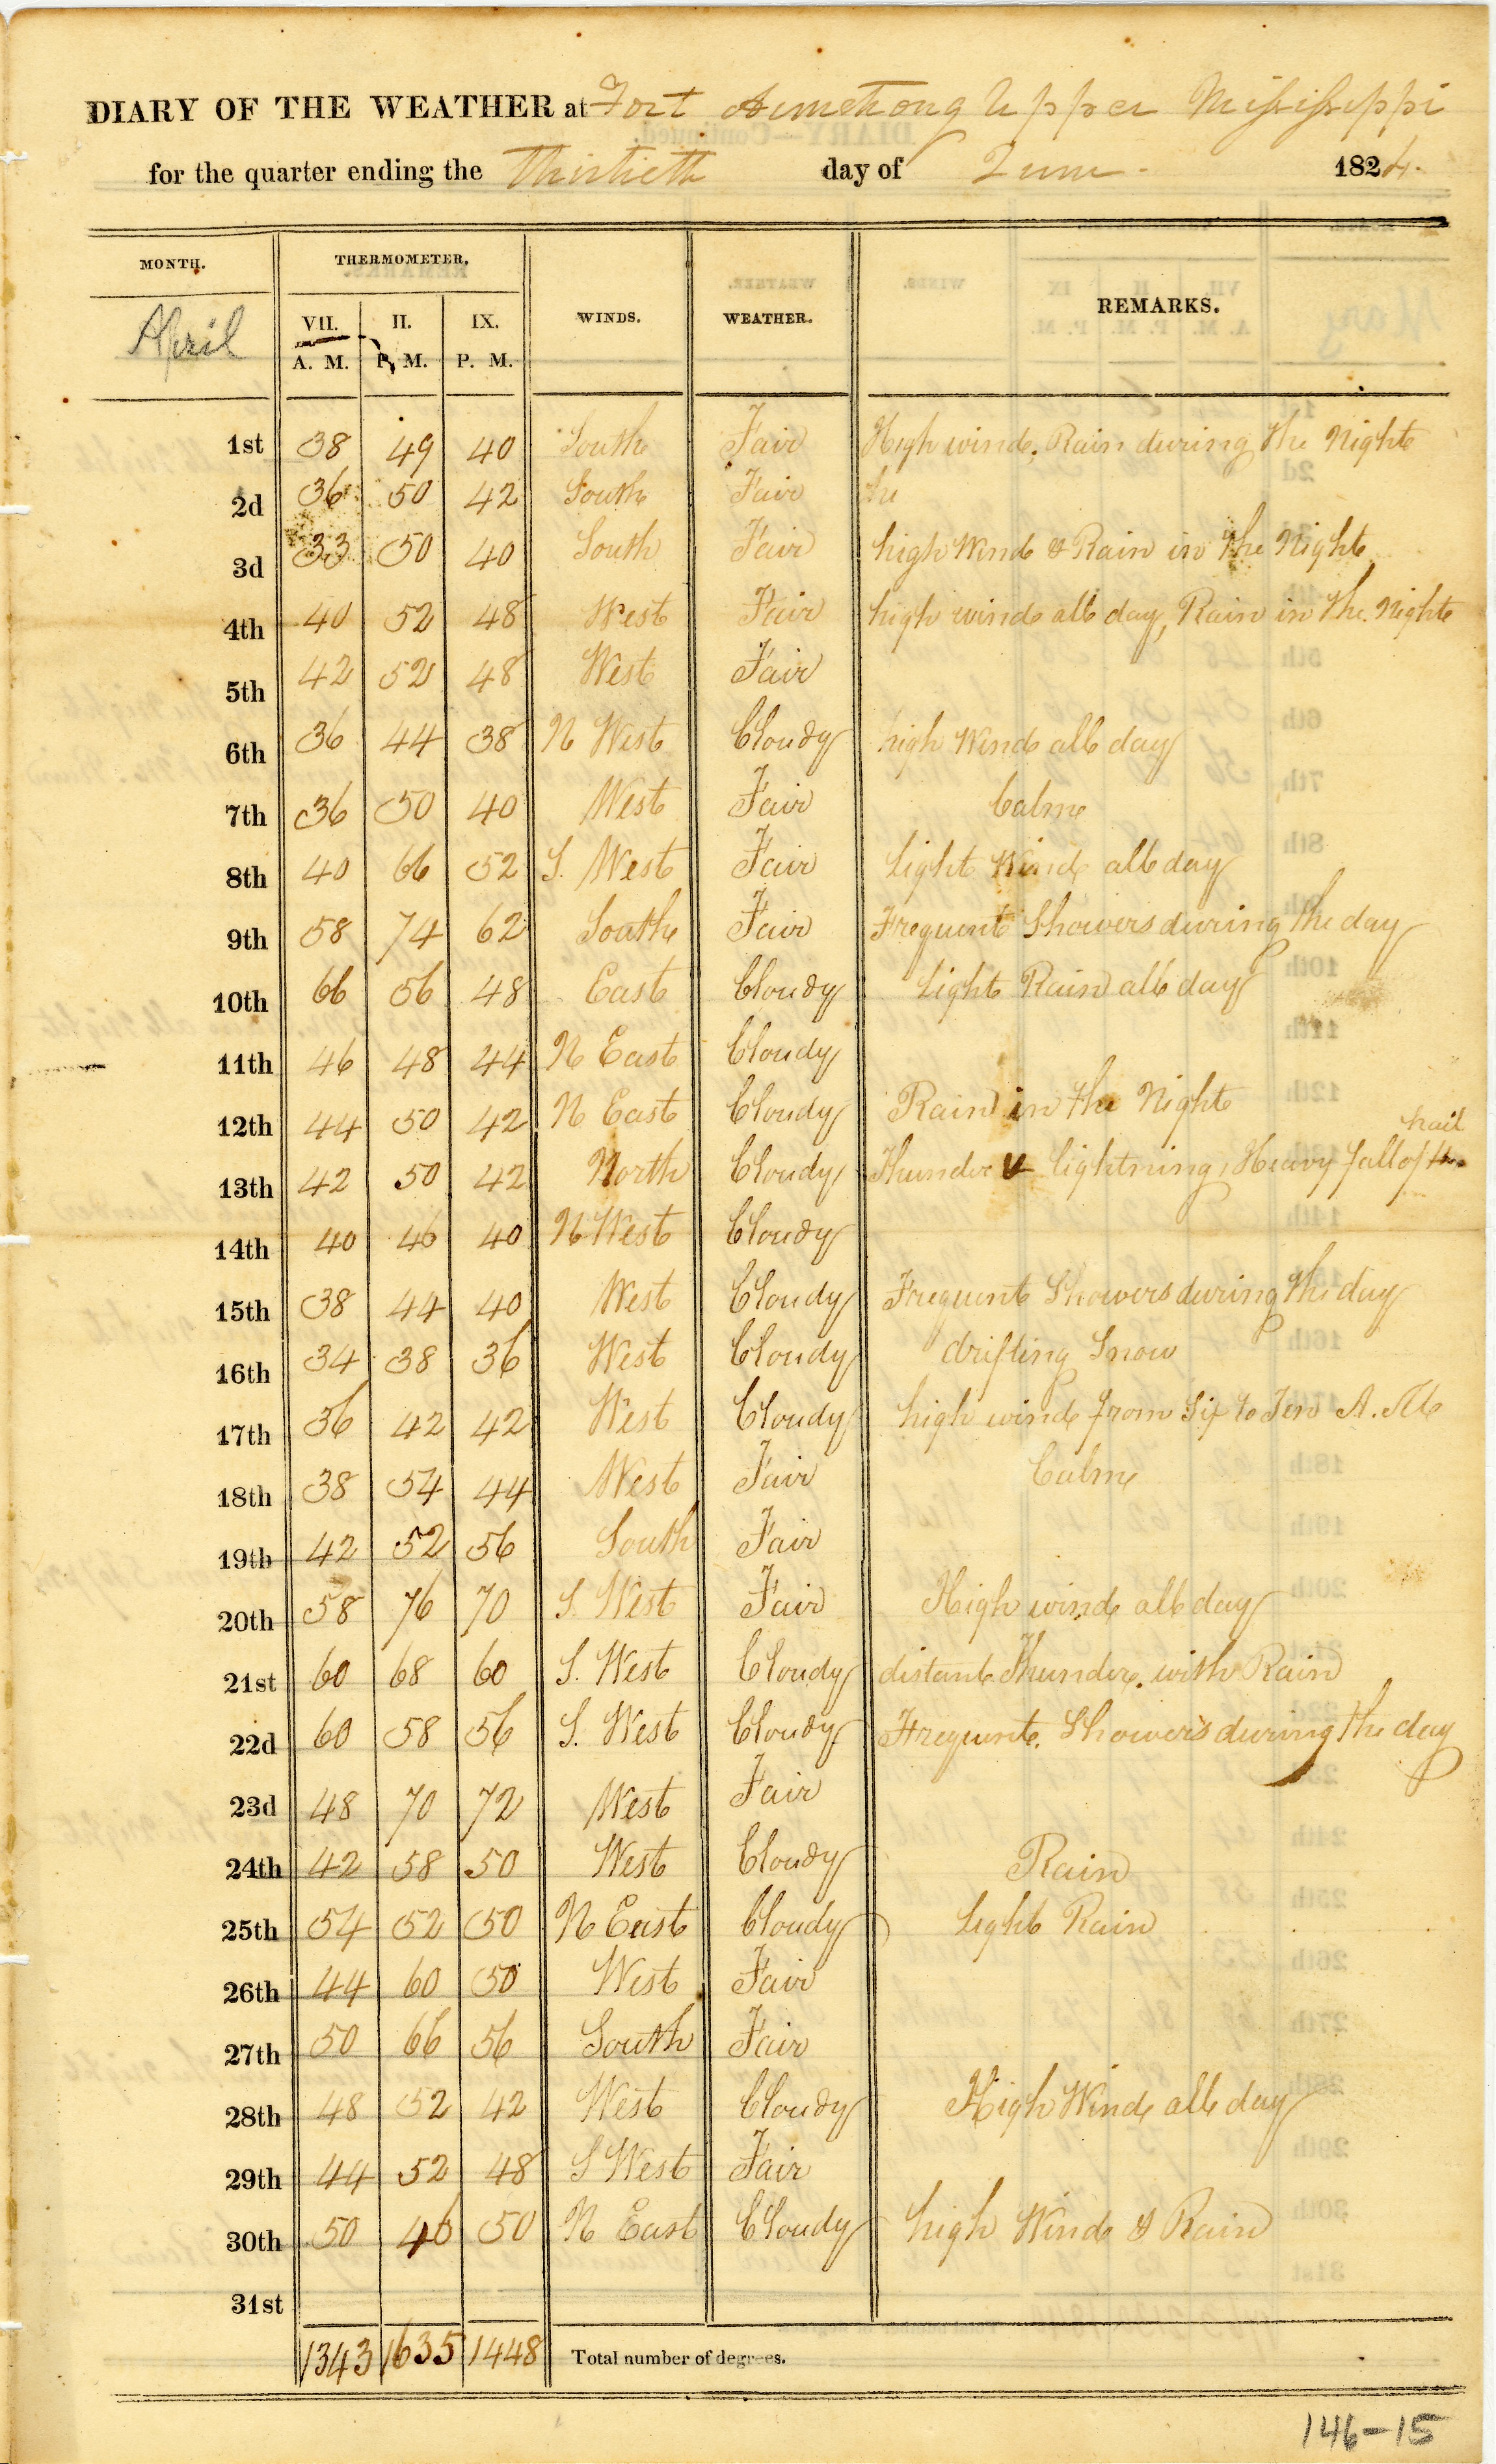 DIARY OF THE WEATHER at Fort Armstrong Upper Missisippi
for the quarter ending the Thirtieth day of June 1824.
MONTH. THERMOMETER. WINDS. WEATHER. REMARKS.
April VII. A. M. II. P. M. IX. P. M.
1st 38 49 40 South Fair High wind, Rain during the Night
2d 36 50 42 South Fair
3d 33 50 40 South Fair high Wind & Rain in the Night
4th 40 52 48 West Fair high wind all day, Rain in the Night
5th 42 52 48 West Fair
6th 36 44 38 N West Cloudy high Wind all day
7th 36 50 40 West Fair Calm
8th 40 66 52 S. West Fair Light Wind all day
9th 58 74 62 South Fair Frequent Showers during the day
10th 66 56 48 East Cloudy Light Rain all day
11th 46 48 44 N East Cloudy
12th 44 50 42 N East Cloudy Rain in the Night
13th 42 50 42 North Cloudy Thunder & lightning, Heavy fall of hail
14th 40 46 40 N West Cloudy
15th 38 44 40 West Cloudy Frequent Showers during the day
16th 34 38 36 West Cloudy drifting Snow
17th 36 42 42 West Cloudy high wind from Six to Ten A. M
18th 38 54 44 West Fair Calm
19th 42 52 56 South Fair
20th 58 76 70 S. West Fair High wind all day
21st 60 68 60 S. West Cloudy distant Thunder. with Rain
22d 60 58 56 S. West Cloudy Frequent Showers during the day
23d 48 70 72 West Fair
24th 42 58 50 West Cloudy Rain
25th 54 52 50 N East Cloudy Light Rain
26th 44 60 50 West Fair
27th 50 66 56 South Fair
28th 48 52 42 West Cloudy High Wind all day
29th 44 52 48 S West Fair
30th 50 46 50 N East Cloudy high Wind & Rain
31st
1343 1635 1448 Total number of degrees.
146-15